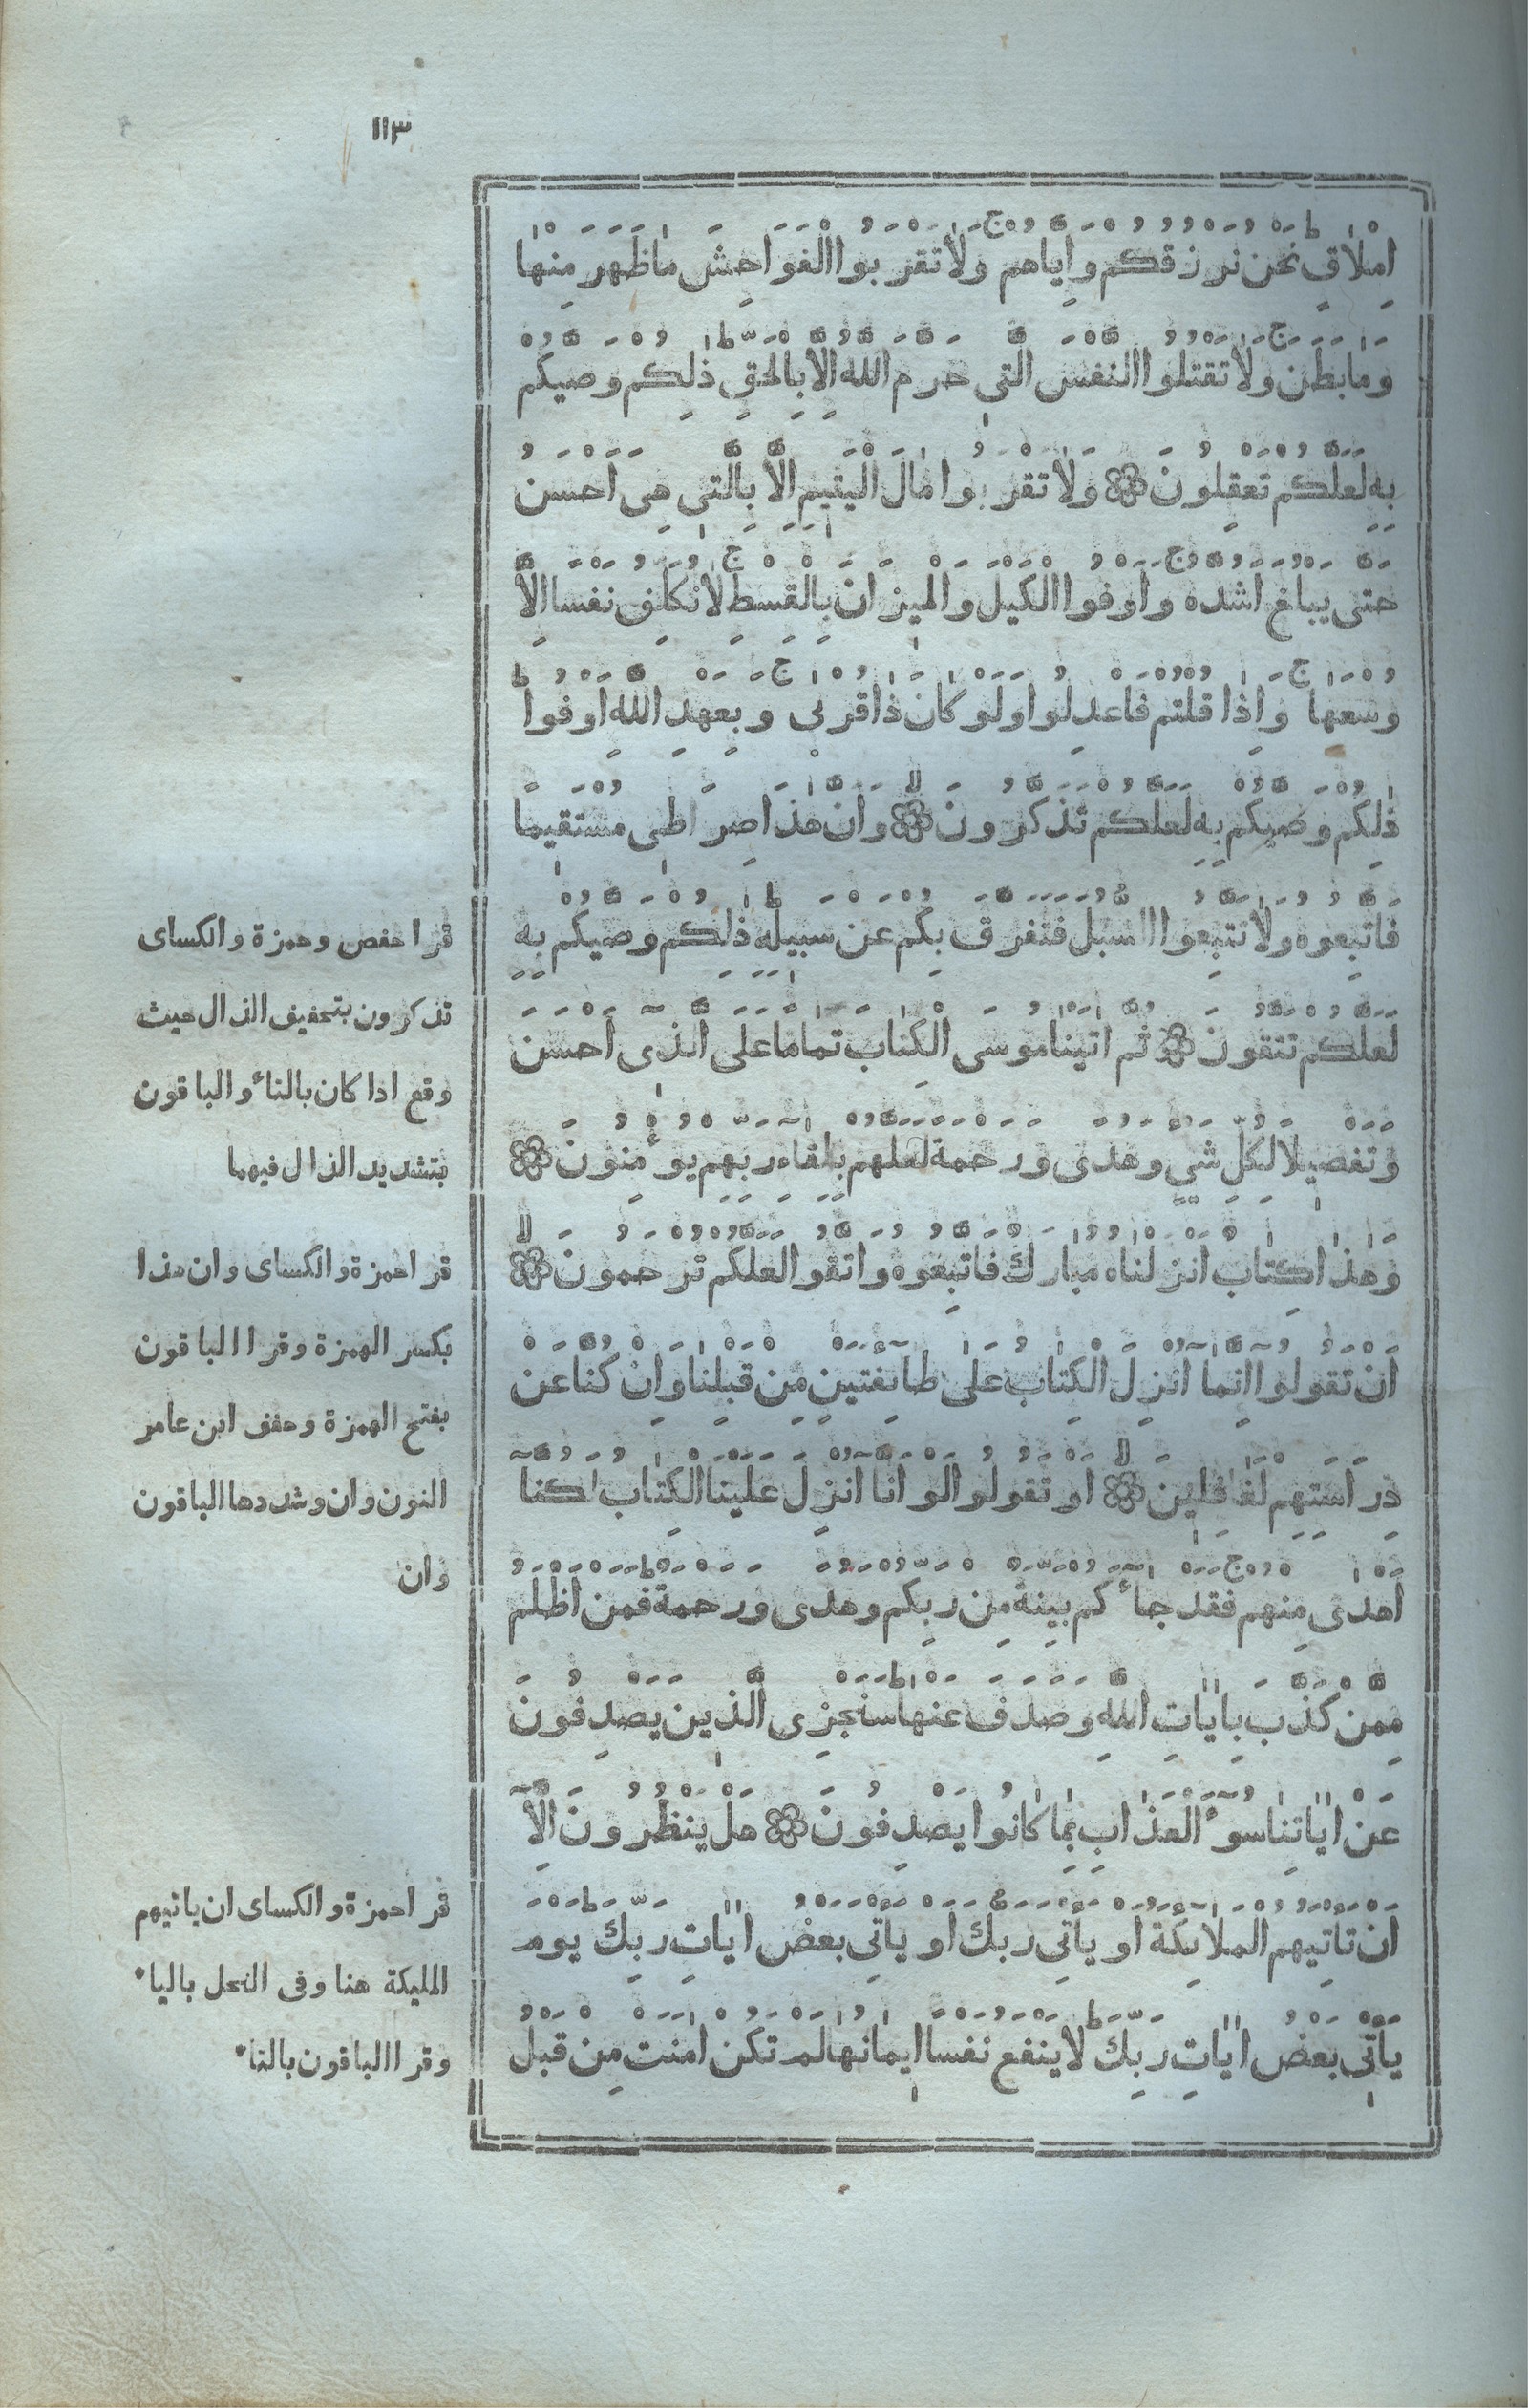 ١١٣
اِمْلاٰقٍ نَحْنُ نَرْزُقُكُمْ وَاِيَّاهُمْ ج وَلاٰ تَقْرَبُوا الْفَوٰاحِشَ مٰا ظَهَرَ مِنْهٰا
وَمٰا بَطَنَ ج وَلاٰ تَقْتُلُوا النَّفْسَ الَّتِي حَرَّمَ اللّٰهُ اِلاَّ بِالْحَقِّ ط ذٰلِكُمْ وَصّٰيكُمْ
بِهِ لَعَلَّكُمْ تَعْقِلُونَ ۞ وَلاٰ تَقْرَبُوا مٰالَ الْيَتِيمِ اِلاَّ بِالَّتِي هِىَ اَحْسَنُ
حَتّٰى يَبْلُغَ اَشُدَّهُ ج وَاَوْفُوا الْكَيْلَ وَالْمِيزٰانَ بِالْقِسْطِ ج لاٰ نُكَلِّفُ نَفْسًا اِلاَّ
وُسْعَهٰا ج وَاِذٰا قُلْتُمْ فَاعْدِلُوا وَلَوْ كٰانَ ذٰا قُرْبٰى ج وَبِعَهْدِ اللّٰهِ اَوْفُوا ط
ذٰلِكُمْ وَصّٰيكُمْ بِهِ لَعَلَّكُمْ تَذَكَّرُونَ ۞ لا وَاَنَّ هٰذَا صِرٰاطِى مُسْتَقِيمًا
فَاتَّبِعُوهُ وَلاٰ تَتَّبِعُوا السُّبُلَ فَتَفَرَّقَ بِكُمْ عَنْ سَبِيلِهِ ط ذٰلِكُمْ وَصّٰيكُمْ بِهِ
لَعَلَّكُمْ تَتَّقُونَ ۞ ثُمَّ اٰتَيْنٰا مُوسَى الْكِتٰابَ تَمٰامًا عَلَى الَّذِى اَحْسَنَ
وَتَفْصِيلاً لِكُلِّ شَىْءٍ وَهُدًى وَرَحْمَةً لَعَلَّهُمْ بِلِقٰاءِ رَبِّهِمْ يُؤْمِنُونَ ۞
وَهٰذٰا كِتٰابٌ اَنْزَلْنٰاهُ مُبٰارَكٌ فَاتَّبِعُوهُ وَاتَّقُوا لَعَلَّكُمْ تُرْحَمُونَ لا ۞
اَنْ تَقُولُوا اِنَّمٰا اُنْزِلَ الْكِتٰابُ عَلٰى طٰائِفَتَيْنِ مِنْ قَبْلِنٰا وَاِنْ كُنَّا عَنْ
دِرٰاسَتِهِمْ لَغٰافِلِينَ لا ۞ اَوْ تَقُولُوا لَوْ اَنَّا اُنْزِلَ عَلَيْنَا الْكِتٰابُ لَكُنَّا
اَهْدٰى مِنْهُمْ ج فَقَدْ جٰاءَكُمْ بَيِّنَةٌ مِنْ رَبِّكُمْ وَهُدًى وَرَحْمَةٌ ط فَمَنْ اَظْلَمُ
مِمَّنْ كَذَّبَ بِاٰيٰاتِ اللّٰهِ وَصَدَفَ عَنْهٰا ط سَنَجْزِى الَّذِينَ يَصْدِفُونَ
عَنْ اٰيٰاتِنٰا سُوءَ الْعَذٰابِ بِمٰا كٰانُوا يَصْدِفُونَ ۞ هَلْ يَنْظُرُونَ اِلاَّ
اَنْ تَاْتِيَهُمُ الْمَلاٰئِكَةُ اَوْ يَاْتِىَ رَبُّكَ اَوْ يَاْتِىَ بَعْضُ اٰيٰاتِ رَبِّكَ ط يَوْمَ
يَاْتِى بَعْضُ اٰيٰاتِ رَبِّكَ ط لاٰ يَنْفَعُ نَفْسًا اِيمٰانُهٰا لَمْ تَكُنْ اٰمَنَتْ مِنْ قَبْلُ
قرا حفص وحمزة والكساى
تذكرون بتخفيف الذال حيث
وقع اذا كان بالتاء والباقون
بتشديد الذال فيهما
قرا حمزة والكساى وان هذا
بكسر الهمزة وقرا الباقون
بفتح الهمزة وخفف ابن عامر
النون وان وشددها الباقون
وان
قرا حمزة والكساى ان ياتيهم
المليكة هنا وفى النحل بالياء
وقرا الباقون بالتاء